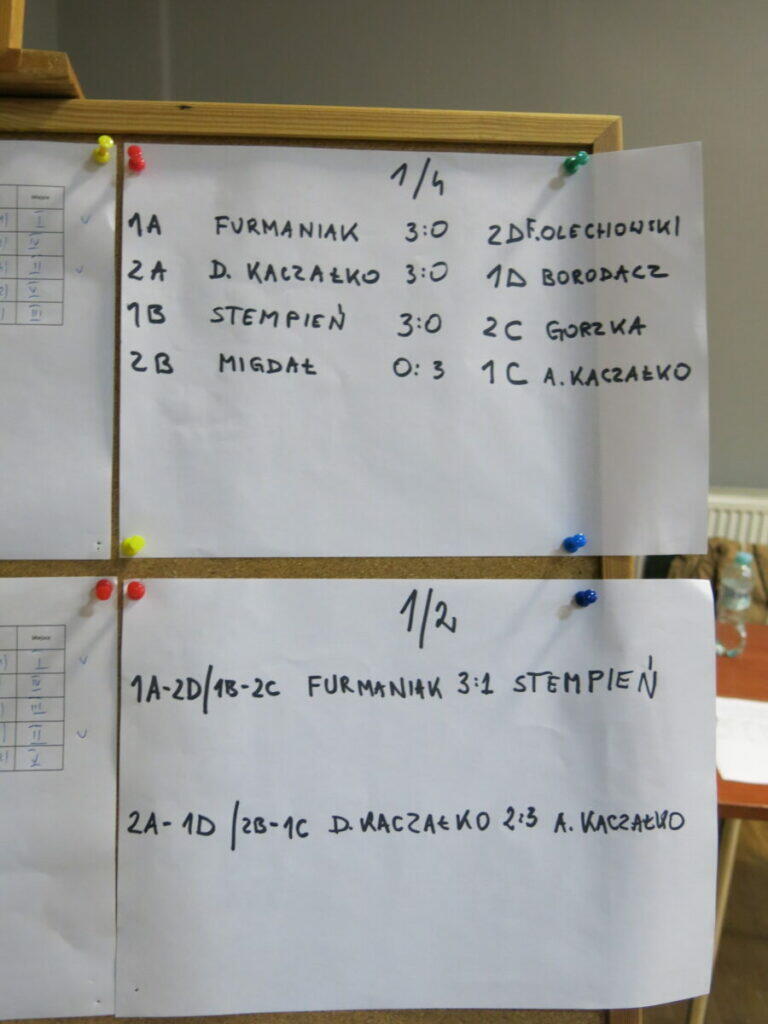 1/4
1A FURMANIAK 3:0 2D F.OLECHOWSKI
2A D. KACZAŁKO 3:0 1D BORODACZ
1B STEMPIEŃ 3:0 2C GORZKA
2B MIGDAŁ 0:3 1C A.KACZAŁKO
1/2
1A-2D/1B-2C FURMANIAK 3:1 STEMPIEŃ
2A-1D/2B-1C D.KACZAŁKO 2:3 A.KACZAŁKO